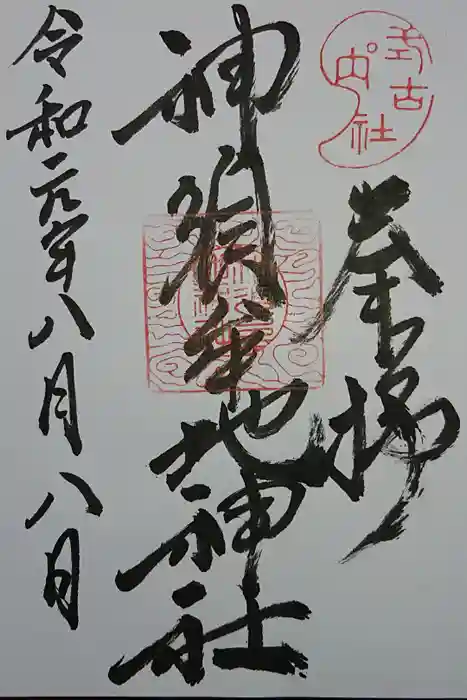 式内古社
奉拝
神須牟地神社
令和元年八月八日